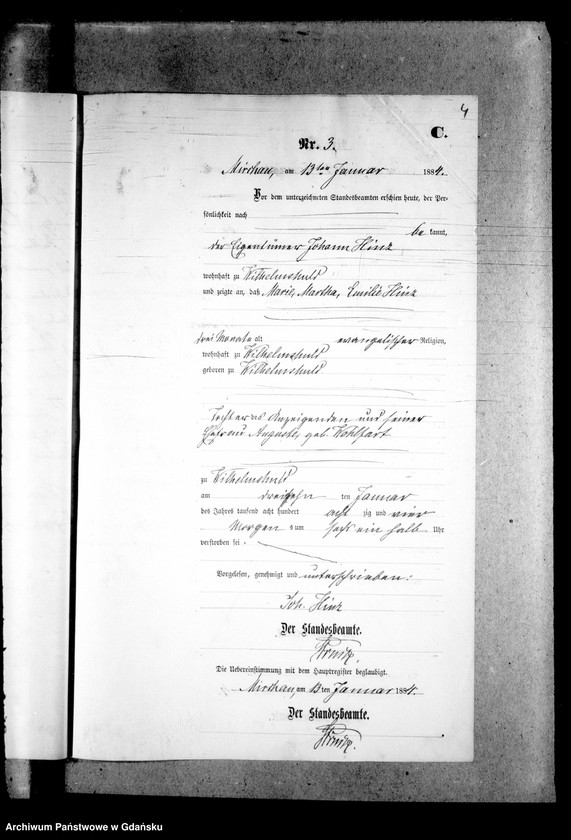 4
C.
Nr. 3.
Mirchau, am 13ten Januar 1884.
Vor dem unterzeichneten Standesbeamten erschien heute, der Per-
sönlichkeit nach
be kannt,
der Eigentümer Johann Hinz
wohnhaft zu Wilhelmshuld
und zeigte an, daß Marie, Martha, Emilie Hinz
drei Monate alt evangelischer Religion,
wohnhaft zu Wilhelmshuld
geboren zu Wilhelmshuld
Tochter des Anzeigenden und seiner
Ehefrau Auguste, geb. Wohlfart
zu Wilhelmshuld
am dreizehn ten Januar
des Jahres tausend acht hundert acht zig und vier
Morgens um sechs ein halb Uhr
verstorben sei.
Vorgelesen, genehmigt und unterschrieben:
Joh. Hinz
Der Standesbeamte.
Die Uebereinstimmung mit dem Hauptregister beglaubigt.
Mirchau, am 13 ten Januar 1884.
Der Standesbeamte.
Archiwum Państwowe w Gdańsku